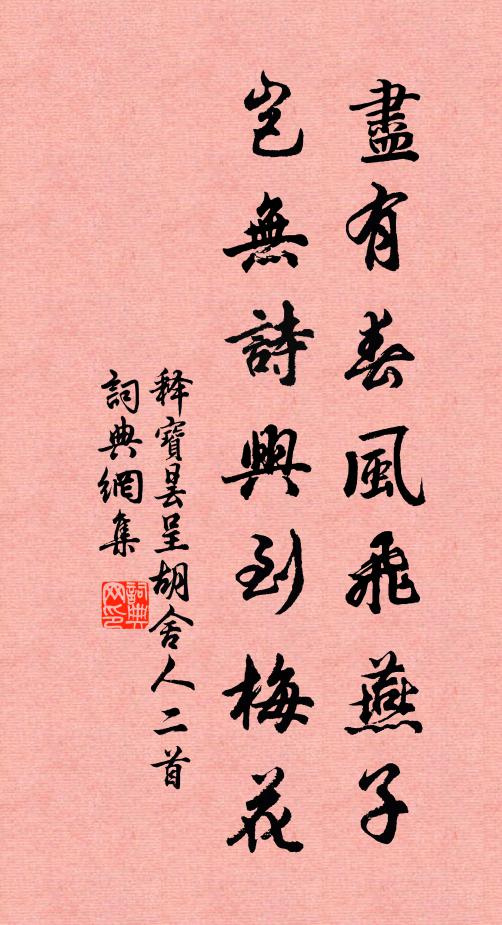 盡有春風飛燕子
豈無詩興到梅花
釋寶曇呈胡舍人二首
詞典網集
詞典网印